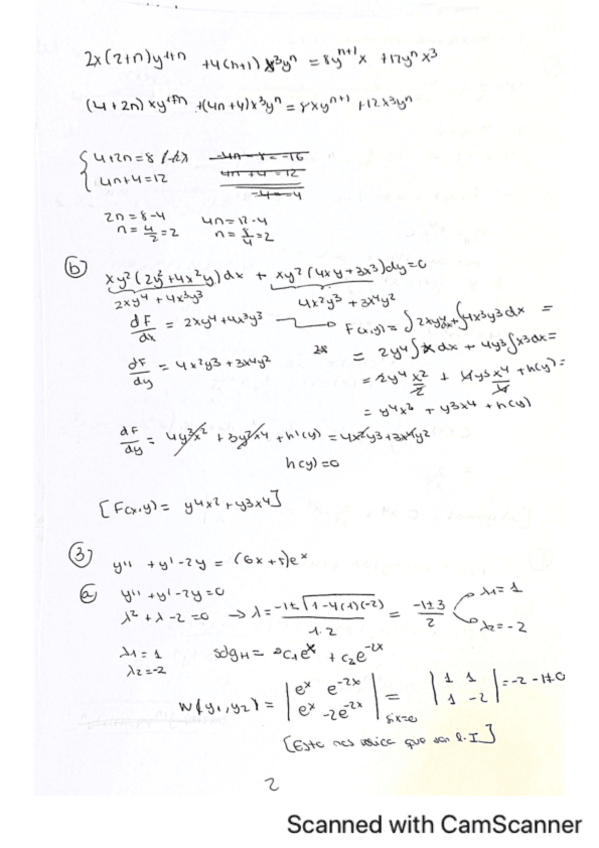 2x(2+n)y^{1+n} + 4(n+1)x³yⁿ = 8y^{n+1}x + 12yⁿx³
(4+2n)xy^{1+n} + (4n+4)x³yⁿ = 8xy^{n+1} + 12x³yⁿ
{ 4+2n=8 (-2) -4n-8=-16
4n+4=12 4n+4=12
-4=-4
2n=8-4 4n=12-4
n=4/2=2 n=8/4=2
(b) xy²(2y²+4x²y)dx + xy²(4xy+3x³)dy=0
2xy⁴+4x³y³ 4x²y³+3x⁴y²
dF/dx = 2xy⁴+4x³y³ → F(x,y)=∫2xy⁴dx+∫4x³y³dx =
dF/dy = 4x²y³+3x⁴y² = 2y⁴∫x dx + 4y³∫x³dx =
= 2y⁴ x²/2 + 4y³ x⁴/4 + h(y) =
= y⁴x² + y³x⁴ + h(y)
dF/dy = 4y³x² + 3y²x⁴ + h'(y) = 4x²y³+3x⁴y²
h(y)=0
[F(x,y)= y⁴x²+y³x⁴]
(3) y'' + y' - 2y = (6x+5)eˣ
(a) y'' + y' - 2y = 0
λ²+λ-2=0 → λ = (-1±√(1-4(1)(-2)))/(1·2) = (-1±3)/2 λ₁=1
λ₂=-2
λ₁=1
λ₂=-2 sdgH= C₁eˣ + C₂e^{-2x}
W(y₁,y₂) = |eˣ e^{-2x}| = |1 1| = -2-1≠0
|eˣ -2e^{-2x}| si x=0 |1 -2|
[Esto nos indica que son l.I]
2
Scanned with CamScanner